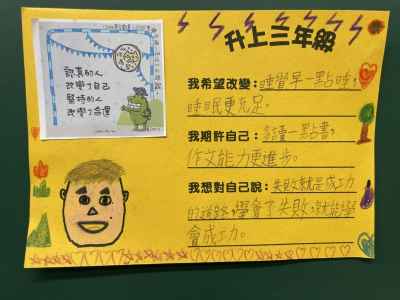 升上三年級
認真的人
改變了自己
堅持的人
改變了命運
我希望改變：睡覺早一點睡，
睡眠更充足。
我期許自己：多讀一點書，
作文能力更進步。
我想對自己說：失敗就是成功
的道路，學會了失敗，就能學
會成功。